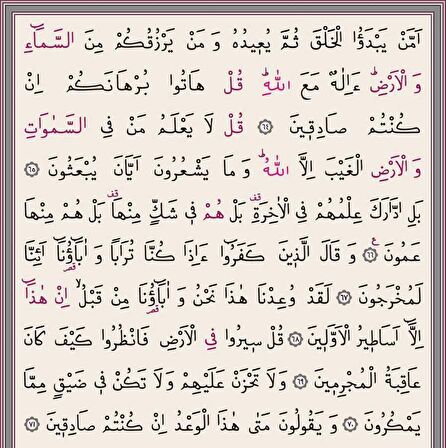 اَمَّنْ يَبْدَؤُا الْخَلْقَ ثُمَّ يُعِيدُهُ وَ مَنْ يَرْزُقُكُمْ مِنَ السَّمَاۤءِ
وَ الْاَرْضِۜ ءَاِلٰهٌ مَعَ اللّٰهِۜ قُلْ هَاتُوا بُرْهَانَكُمْ اِنْ
كُنْتُمْ صَادِقٖينَ ﴿٦٤﴾ قُلْ لَا يَعْلَمُ مَنْ فِى السَّمٰوَاتِ
وَ الْاَرْضِ الْغَيْبَ اِلَّا اللّٰهُۜ وَ مَا يَشْعُرُونَ اَيَّانَ يُبْعَثُونَ ﴿٦٥﴾
بَلِ ادَّارَكَ عِلْمُهُمْ فِى الْاٰخِرَةِ۠ بَلْ هُمْ فٖى شَكٍّ مِنْهَا۠ بَلْ هُمْ مِنْهَا
عَمُونَ ﴿٦٦﴾ وَ قَالَ الَّذٖينَ كَفَرُٓوا ءَاِذَا كُنَّا تُرَابًا وَ اٰبَاۤؤُنَٓا اَئِنَّا
لَمُخْرَجُونَ ﴿٦٧﴾ لَقَدْ وُعِدْنَا هٰذَا نَحْنُ وَ اٰبَاۤؤُنَا مِنْ قَبْلُۙ اِنْ هٰذَٓا
اِلَّٓا اَسَاطٖيرُ الْاَوَّلٖينَ ﴿٦٨﴾ قُلْ سٖيرُوا فِى الْاَرْضِ فَانْظُرُوا كَيْفَ كَانَ
عَاقِبَةُ الْمُجْرِمٖينَ ﴿٦٩﴾ وَلَا تَحْزَنْ عَلَيْهِمْ وَلَا تَكُنْ فٖى ضَيْقٍ مِمَّا
يَمْكُرُونَ ﴿٧٠﴾ وَ يَقُولُونَ مَتٰى هٰذَا الْوَعْدُ اِنْ كُنْتُمْ صَادِقٖينَ ﴿٧١﴾